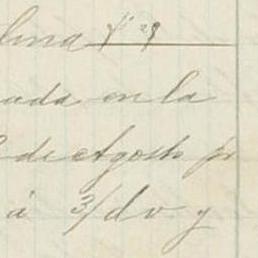 lina
ada en la
de Agosto p
á 3/ d v y